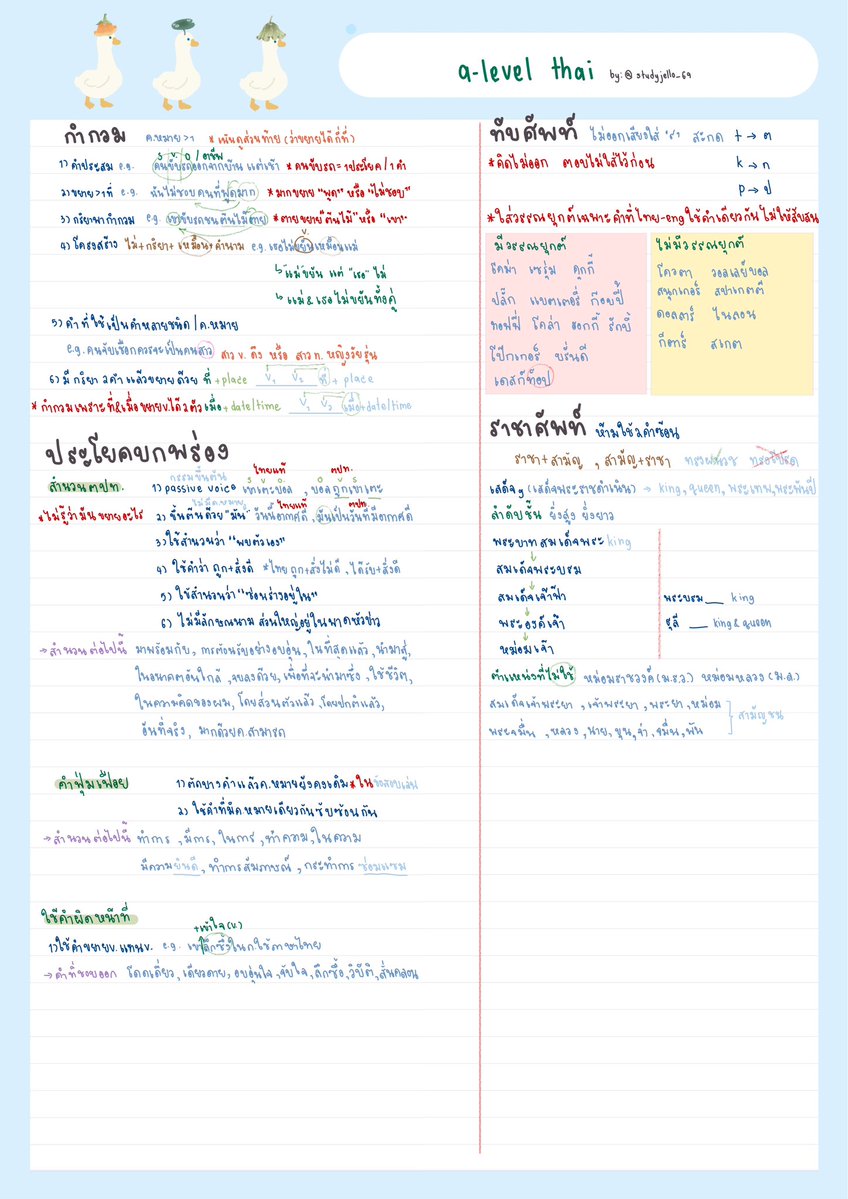 a-level thai by: @studyjello_69
กำกวม ค.หมาย > 1 * เน้นดูส่วนท้าย (ว่าขยายได้กี่ที่)
1) คำประสม e.g. คนขับรถออกจากบ้านแต่เช้า * คนขับรถ = 1 ประโยค / 1 คำ
S V O / อาชีพ
2) ขยาย > 1 ที่ e.g. ฉันไม่ชอบคนที่พูดมาก * มากขยาย "พูด" หรือ "ไม่ชอบ"
3) กริยาทำกำกวม e.g. เขาขับรถชนต้นไม้ตาย * ตายขยาย "ต้นไม้" หรือ "เขา"
4) โครงสร้าง ไม่ + กริยา + เหมือน + คำนาม e.g. เธอไม่ขยันเหมือนแม่
v.
↳ แม่ขยัน แต่ "เธอ" ไม่
↳ แม่ & เธอ ไม่ขยันทั้งคู่
5) คำที่ใช้เป็นคำหลายชนิด / ค.หมาย
e.g. คนจับเชือกควรจะเป็นคนสาว สาว v. ดึง หรือ สาว n. หญิงวัยรุ่น
6) มีกริยา 2 คำ แล้วขยายด้วย ที่ + place V₁ V₂ ที่ + place
* กำกวมเพราะที่&เมื่อขยายv.ได้ 2 ตัว เมื่อ + date/time V₁ V₂ เมื่อ + date/time
ประโยคบกพร่อง
สำนวนตปท.
กรรมขึ้นต้น ไทยแท้ ตปท.
1) passive voice เขาเตะบอล , บอลถูกเขาเตะ
ไทยแท้ ตปท
* ไม่รู้ว่ามันขยายอะไร 2) ขึ้นต้นด้วย "มัน" วันนี้อากาศดี , มันเป็นวันที่มีอากาศดี
3) ใช้สำนวนว่า "พบตัวเอง"
4) ใช้คำว่า ถูก+สิ่งดี * ไทย ถูก+สิ่งไม่ดี , ได้รับ+สิ่งดี
5) ใช้สำนวนว่า "ซ่อนร่างอยู่ใน"
6) ไม่มีลักษณนาม ส่วนใหญ่อยู่ในพาดหัวข่าว
→ สำนวนต่อไปนี้ มาพร้อมกับ, การต้อนรับอย่างอบอุ่น, ในที่สุดแล้ว, นำมาสู่,
ในอนาคตอันใกล้ , จบลงด้วย, เพื่อที่จะนำมาซึ่ง , ใช้ชีวิต,
ในความคิดของผม, โดยส่วนตัวแล้ว , โดยปกติแล้ว,
อันที่จริง, มากด้วยค.สามารถ
คำฟุ่มเฟือย 1) ตัดบางคำแล้วค.หมายยังคงเดิม * ในข้อสอบเล่น
2) ใช้คำที่มีค.หมายเดียวกันซับซ้อนกัน
→ สำนวนต่อไปนี้ ทำการ , มีการ, ในการ , ทำความ, ในความ
มีความยินดี , ทำการสัมภาษณ์ , กระทำการซ่อมแซม
ใช้คำผิดหน้าที่
+เข้าใจ(v.)
1) ใช้คำขยายv. แทนv. e.g. เขาลึกซึ้งในก.ใช้ภาษาไทย
→ คำที่ชอบออก โดดเดี่ยว, เดียวดาย, อบอุ่นใจ, จับใจ, ลึกซึ้ง, วิบัติ, สั่นคลอน
ทับศัพท์ ไม่ออกเสียงใส่ " ์" สะกด t → ต
* คิดไม่ออก ตอบไม่ใส่ไว้ก่อน k → ก
p → ป
* ใส่วรรณยุกต์เฉพาะคำที่ไทย-eng ใช้คำเดียวกันไม่ให้สับสน
มีวรรณยุกต์
โคม่า เซรุ่ม คุกกี้
ปลั๊ก แบตเตอรี่ ก๊อบปี้
ทอฟฟี่ โคล่า ฮอกกี้ รักบี้
โป๊กเกอร์ บรั่นดี
เดสก์ท็อป
ไม่มีวรรณยุกต์
โควตา วอลเลย์บอล
สนุกเกอร์ สปาเกตตี
ดอลลาร์ ไนลอน
กีตาร์ สเกต
ราชาศัพท์ ห้ามใช้ 2 คำซ้อน
ราชา + สามัญ , สามัญ + ราชา ทรงผนวช ทรงโปรด
เสด็จฯ (เสด็จพระราชดำเนิน) → king, queen, พระเทพ, พระพันปี
ลำดับชั้น ยิ่งสูง ยิ่งยาว
พระบาทสมเด็จพระ king
สมเด็จพระบรม
สมเด็จเจ้าฟ้า
พระองค์เจ้า
หม่อมเจ้า
พระบรม__ king
ธุลี __ king & queen
ตำแหน่งที่ไม่ใช้ หม่อมราชวงศ์ (ม.ร.ว.) หม่อมหลวง (ม.ล.)
สมเด็จเจ้าพระยา , เจ้าพระยา , พระยา , หม่อม
พระจมื่น , หลวง , นาย, ขุน, จ่า, หมื่น, พัน
สามัญชน